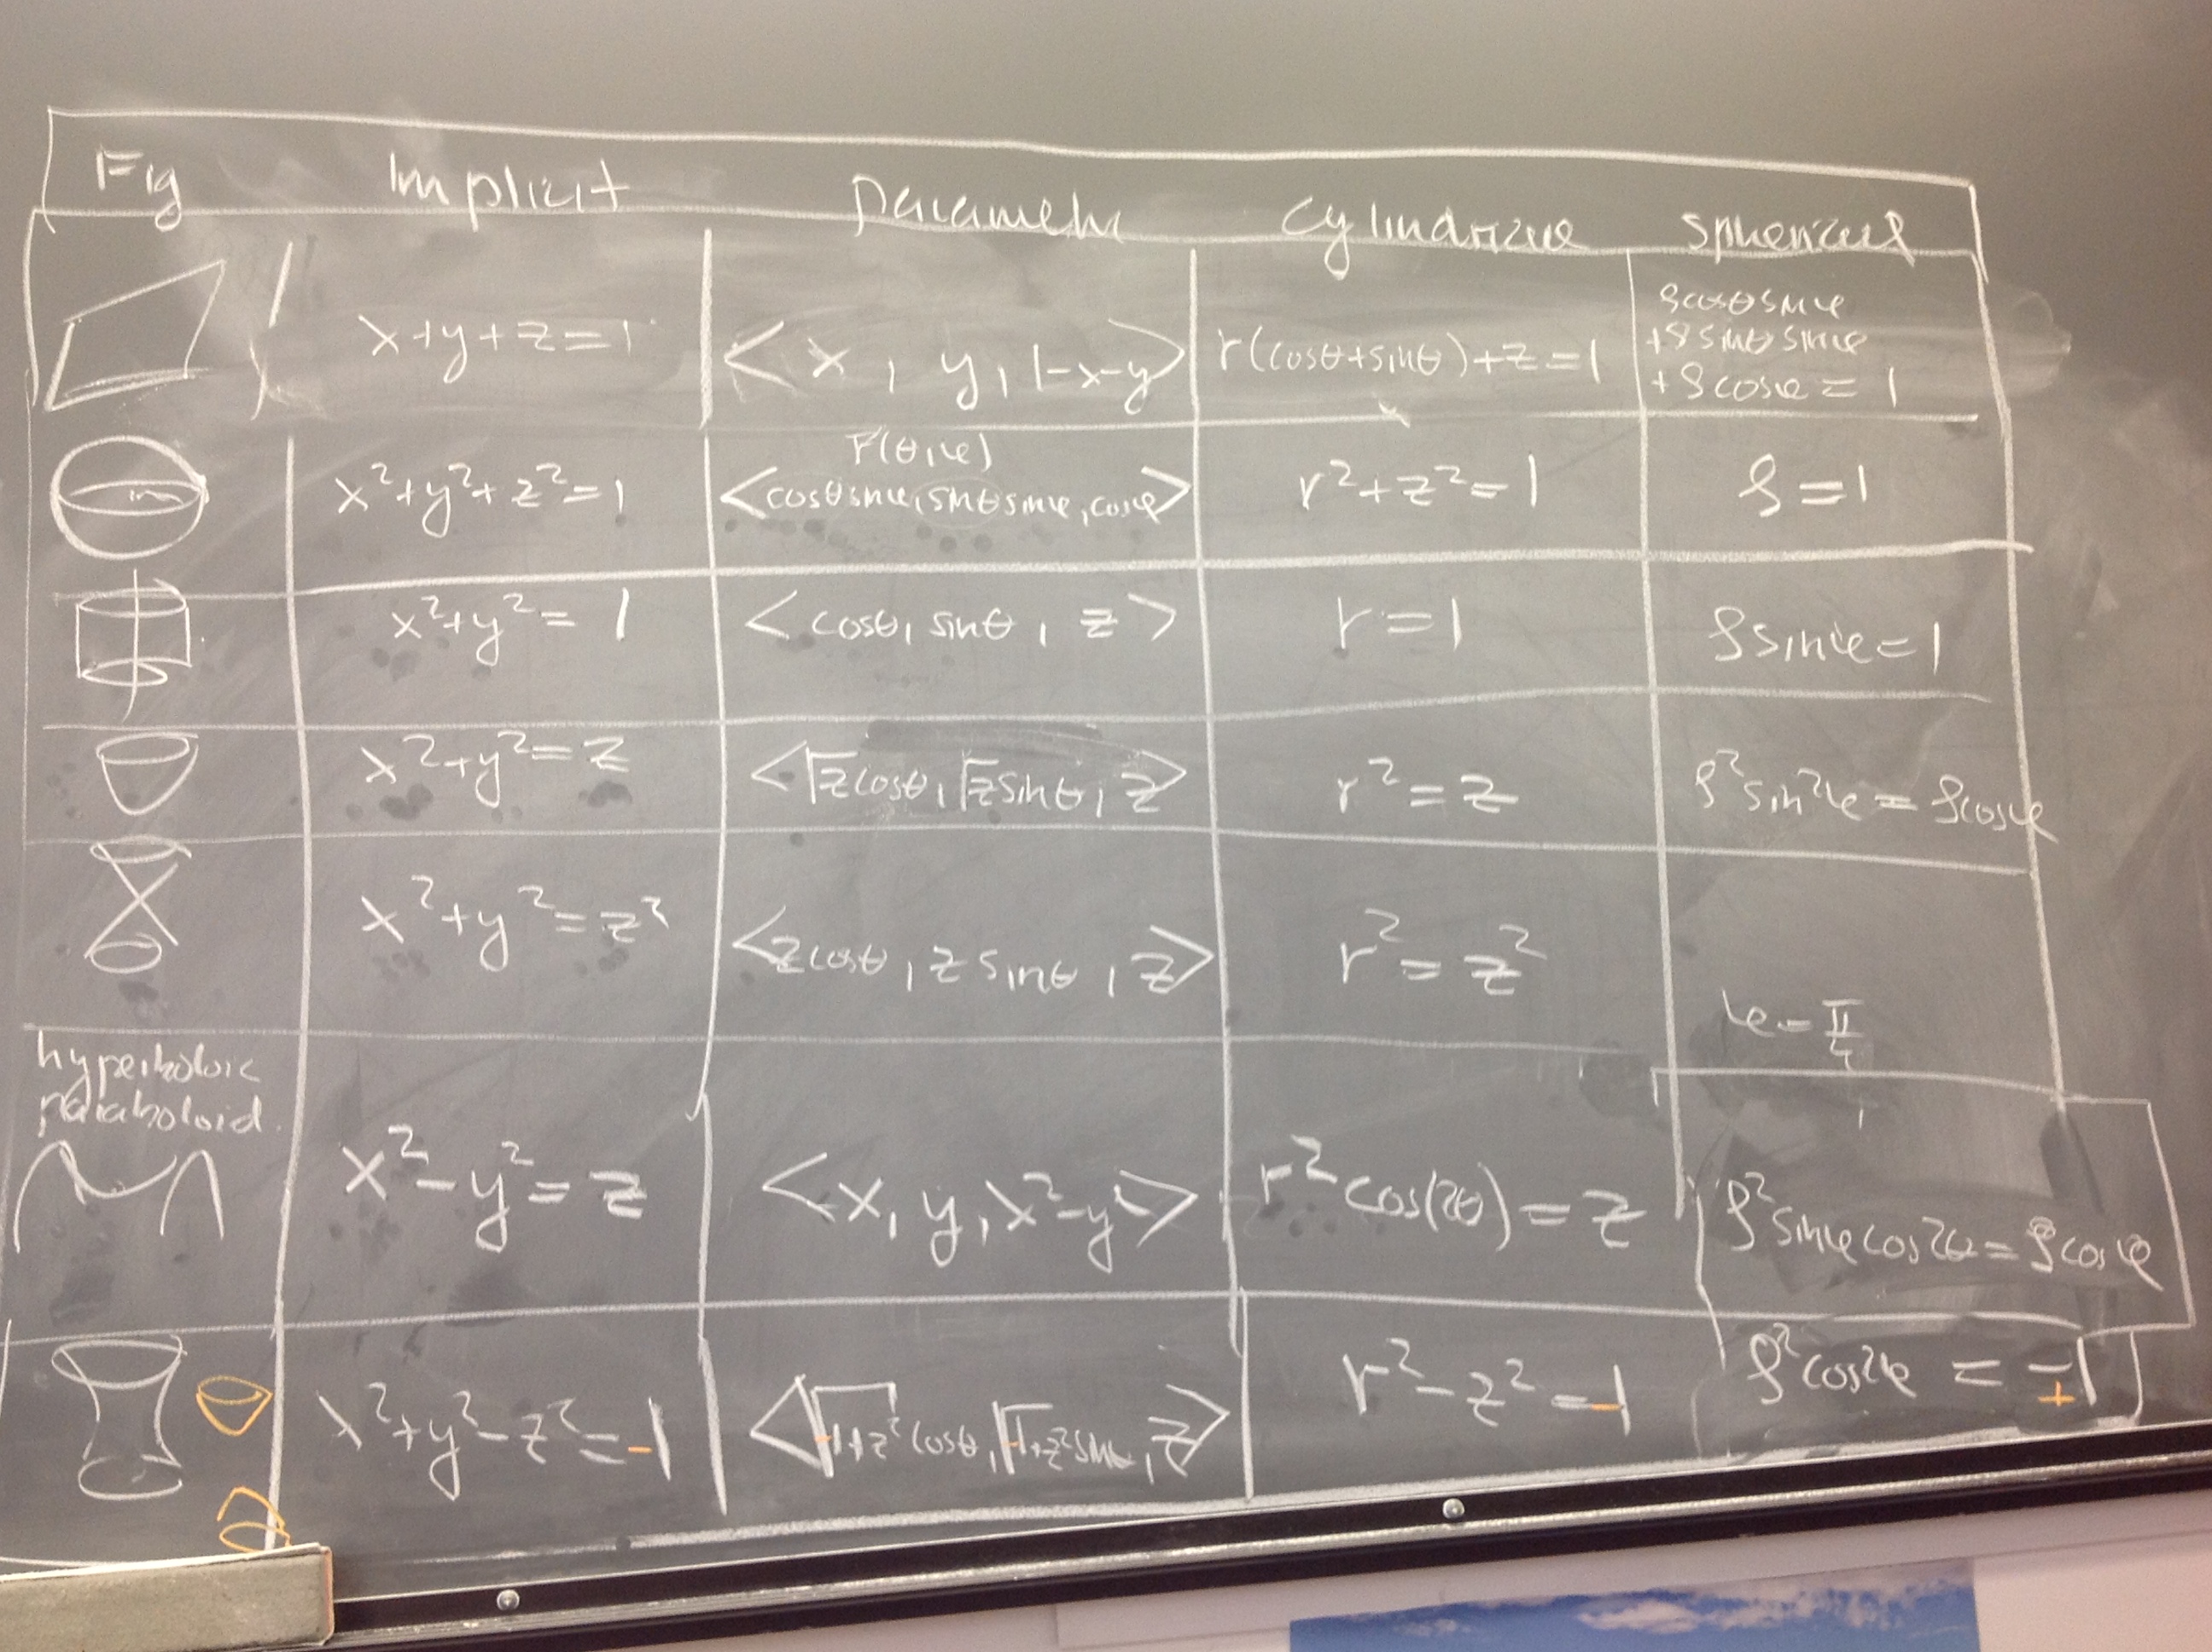 Fig Implicit Parametr Cylindrical Spherical
x+y+z=1 <x, y, 1-x-y> r(cosθ+sinθ)+z=1 ρcosθsinφ
+ρsinθsinφ
+ρcosφ=1
r(θ,φ)
x²+y²+z²=1 <cosθsinφ, sinθsinφ, cosφ> r²+z²=1 ρ=1
x²+y²=1 <cosθ, sinθ, z> r=1 ρsinφ=1
x²+y²=z <√z cosθ, √z sinθ, z> r²=z ρ²sin²φ=ρcosφ
x²+y²=z² <z cosθ, z sinθ, z> r²=z² φ=π/4
hyperboloic
paraboloid.
x²-y²=z <x, y, x²-y> r²cos(2θ)=z ρ²sinφcos2θ=ρcosφ
x²+y²-z²=-1 <√-1+z² cosθ, √-1+z² sinθ, z> r²-z²=-1 ρ²cos2φ=-+1